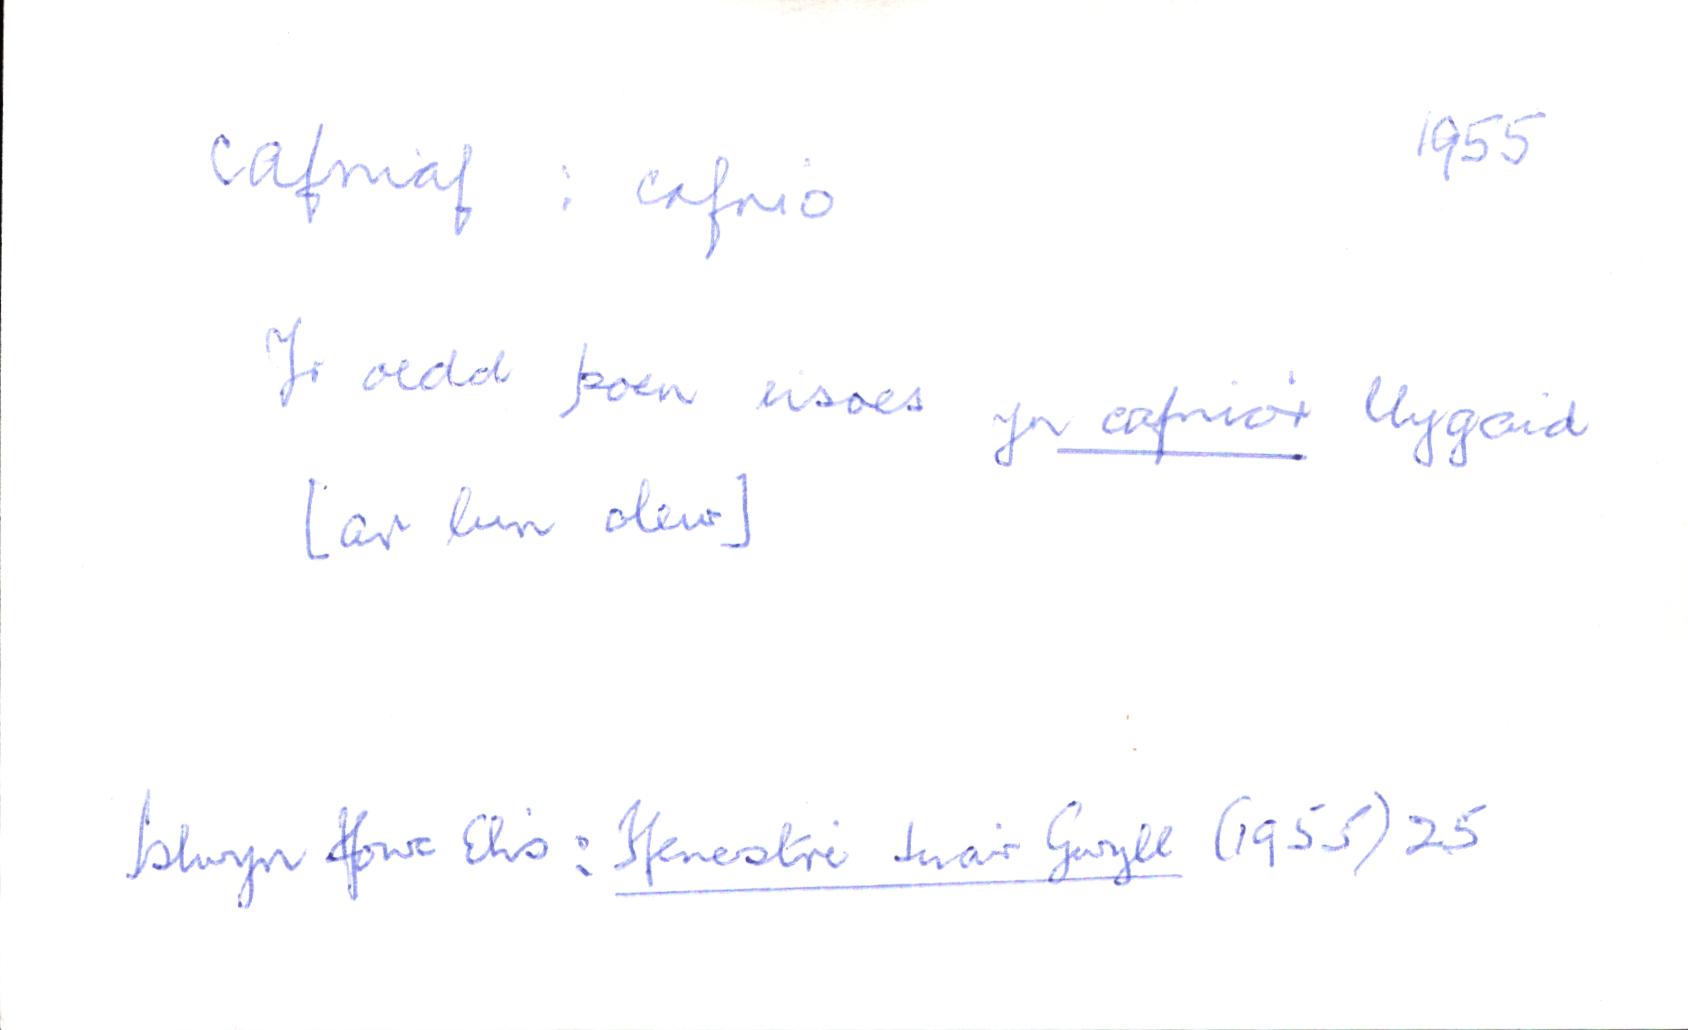 cafniaf : cafnio 1955
Yr oedd poen eisoes yn cafnio'r llygaid
[ar lun olew]
Islwyn Ffowc Elis : Ffenestri tua'r Gwyll (1955) 25